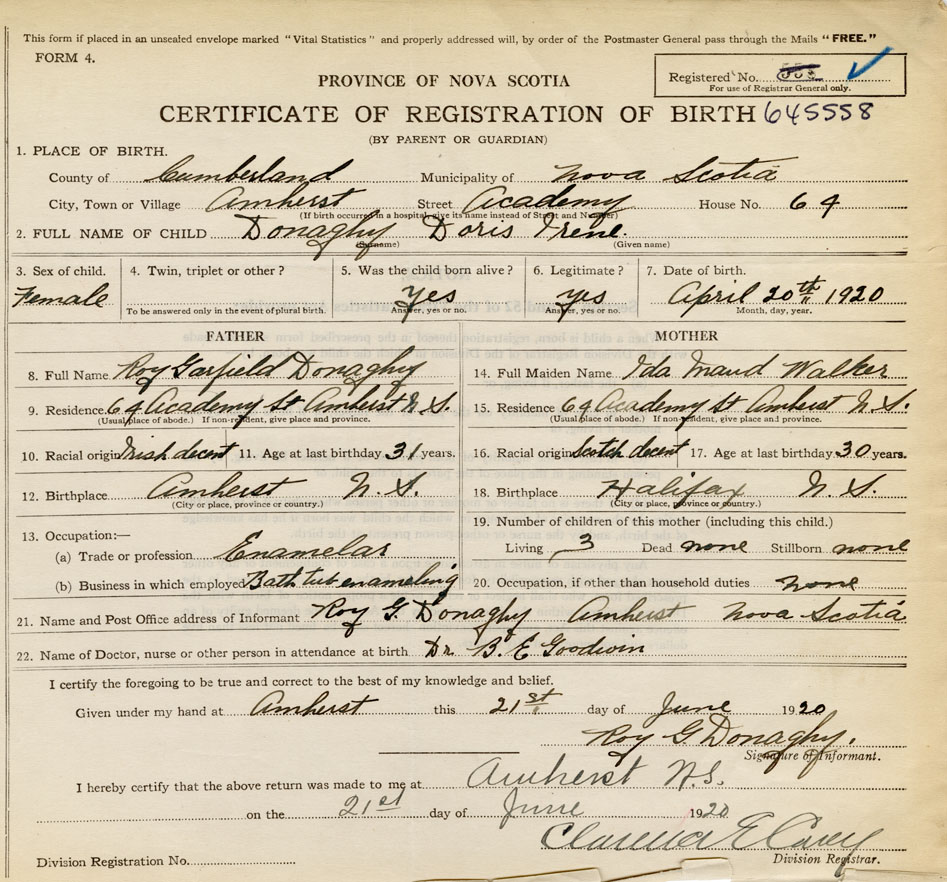 This form if placed in an unsealed envelope marked "Vital Statistics" and properly addressed will, by order of the Postmaster General pass through the Mails "FREE."
FORM 4.
Registered No. 553
For use of Registrar General only.
PROVINCE OF NOVA SCOTIA
CERTIFICATE OF REGISTRATION OF BIRTH 645558
(BY PARENT OR GUARDIAN)
1. PLACE OF BIRTH.
County of Cumberland Municipality of Nova Scotia
City, Town or Village Amherst Street Academy House No. 64
(If birth occurred in a hospital, give its name instead of Street and Number)
2. FULL NAME OF CHILD Donaghy Doris Irene.
(Surname) (Given name)
3. Sex of child. 4. Twin, triplet or other? 5. Was the child born alive? 6. Legitimate? 7. Date of birth.
Female yes yes April 20th 1920
To be answered only in the event of plural birth. Answer, yes or no. Answer, yes or no. Month, day, year.
FATHER MOTHER
8. Full Name Roy Garfield Donaghy 14. Full Maiden Name Ida Maud Walker
9. Residence. 64 Academy St Amherst N.S. 15. Residence 64 Academy St Amherst N.S.
(Usual place of abode.) If non-resident, give place and province. (Usual place of abode.) If non-resident, give place and province.
10. Racial origin Irish decent 11. Age at last birthday 31 years. 16. Racial origin Scotch decent 17. Age at last birthday 30 years.
12. Birthplace Amherst N.S. 18. Birthplace Halifax N.S.
(City or place, province or country.) (City or place, province or country.)
13. Occupation:— 19. Number of children of this mother (including this child.)
(a) Trade or profession Enamelar Living 3 Dead none Stillborn none
(b) Business in which employed Bath tub enameling 20. Occupation, if other than household duties none
21. Name and Post Office address of Informant Roy G. Donaghy Amherst Nova Scotia
22. Name of Doctor, nurse or other person in attendance at birth Dr. B. E Goodwin
I certify the foregoing to be true and correct to the best of my knowledge and belief.
Given under my hand at Amherst this 21st day of June 1920
Roy G Donaghy.
Signature of Informant.
I hereby certify that the above return was made to me at Amherst N.S.
on the 21st day of June 1920
Clarence E Casey
Division Registration No. Division Registrar.